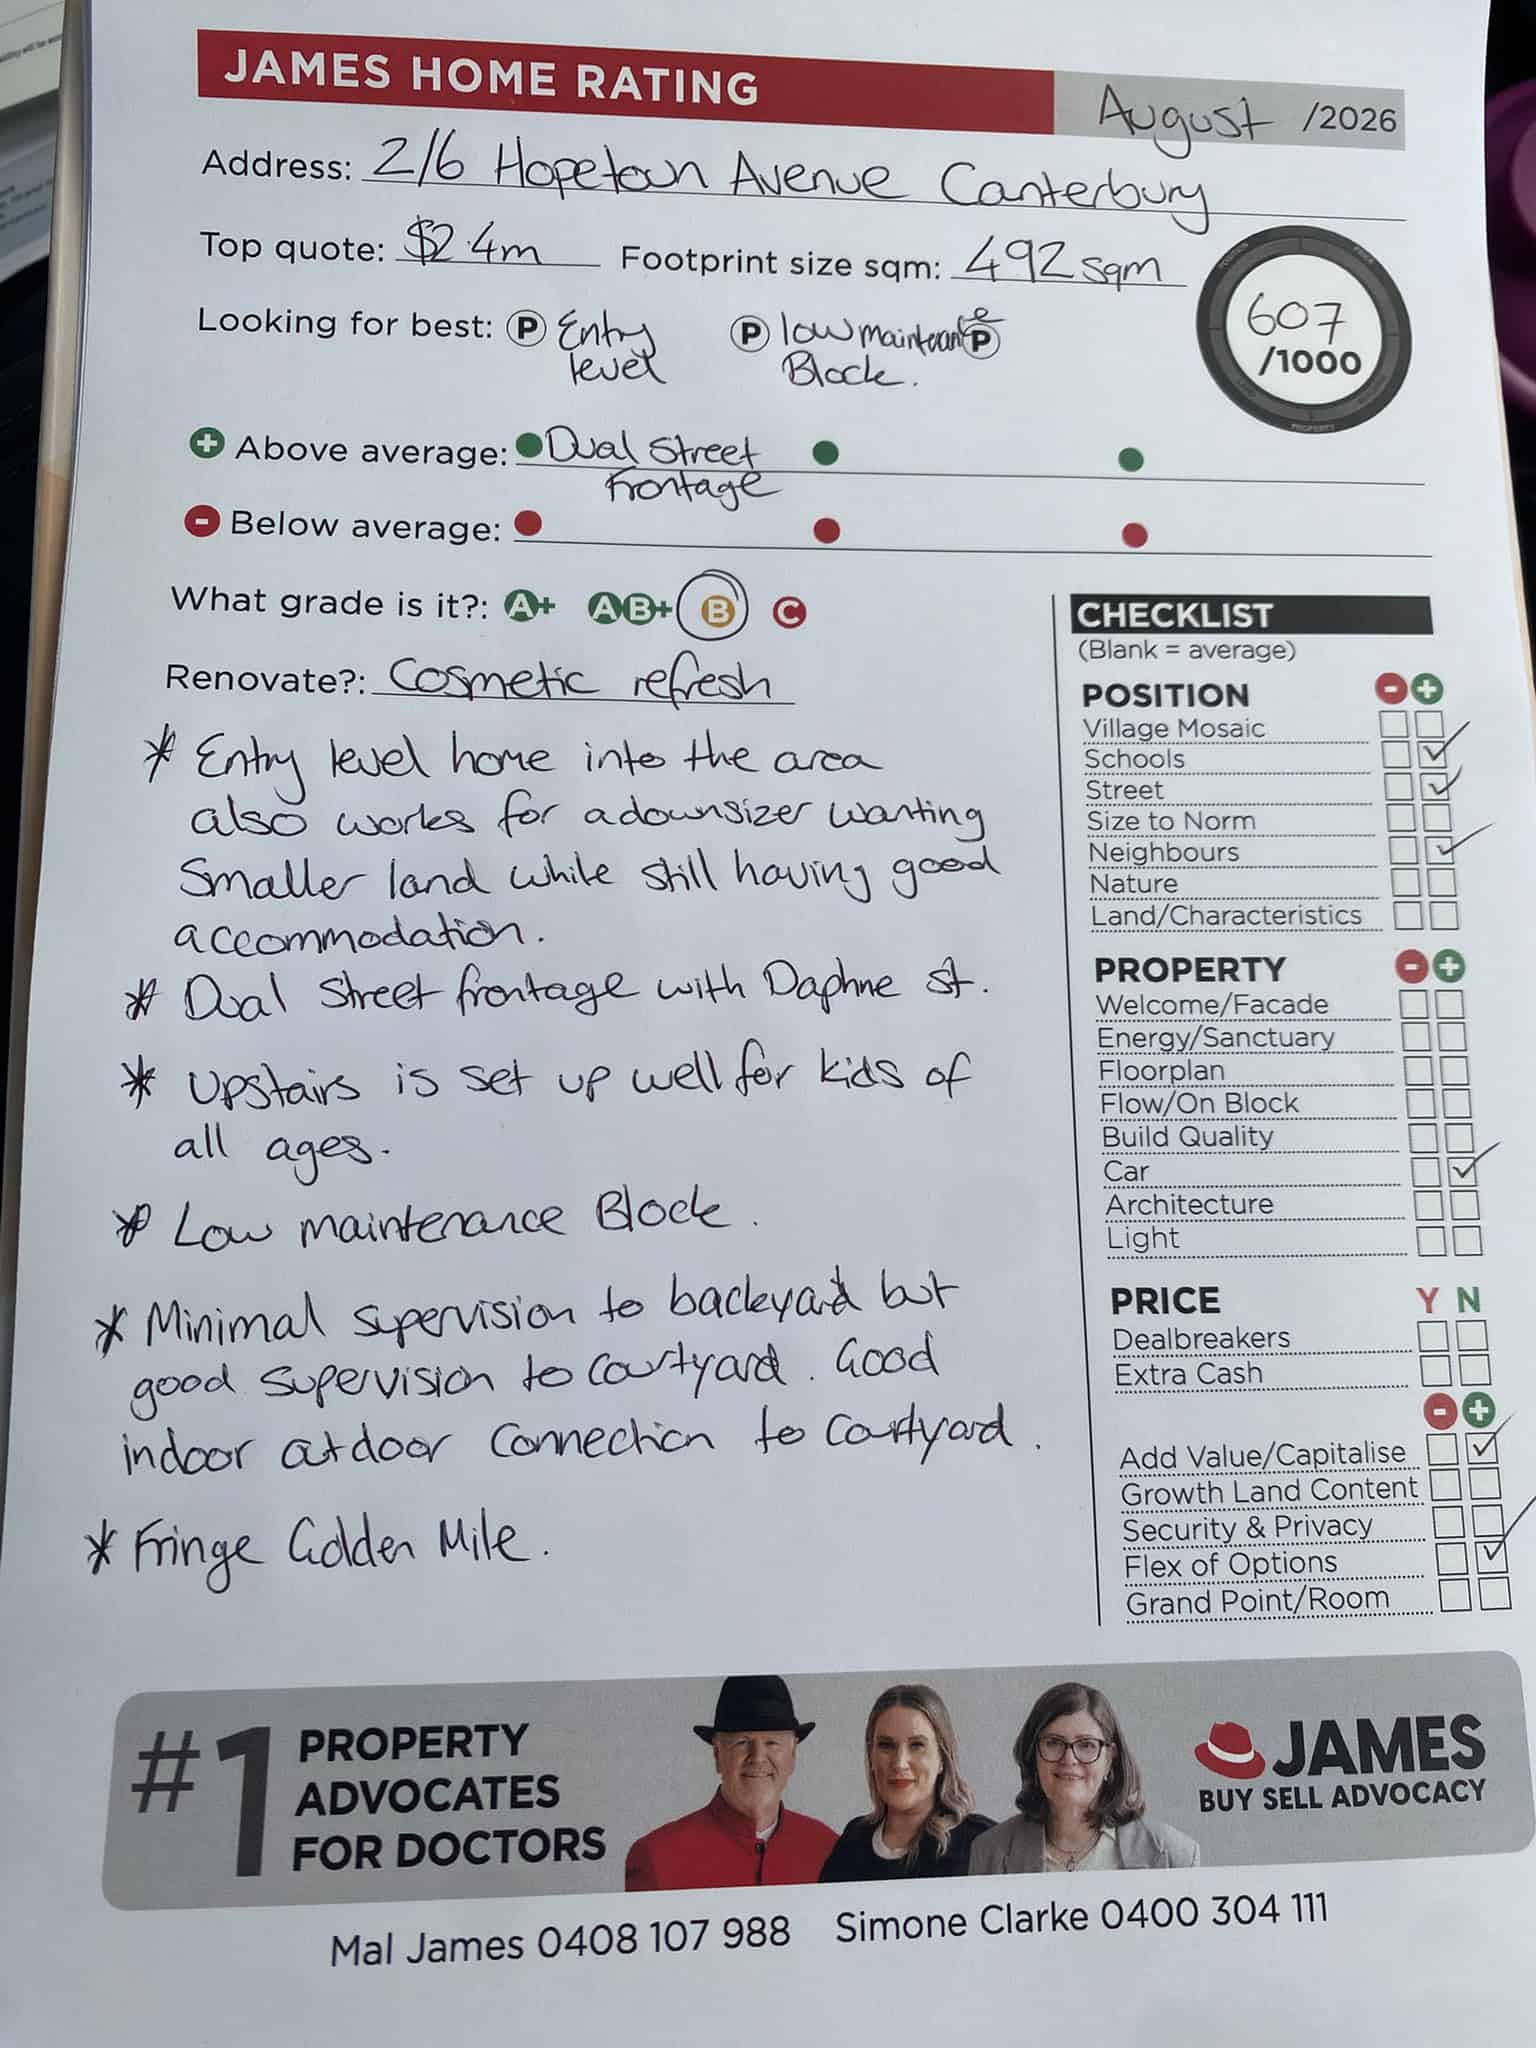 JAMES HOME RATING
August /2026
Address: 2/6 Hopetoun Avenue Canterbury
Top quote: $2.4m Footprint size sqm: 492 sqm
607
/1000
Looking for best: P Entry level P low maintenance Block. P
+ Above average: Dual Street Frontage
- Below average:
What grade is it?: A+ AB+ B C
Renovate?: Cosmetic refresh
* Entry level home into the area
also works for a downsizer wanting
smaller land while still having good
accommodation.
* Dual Street frontage with Daphne st.
* Upstairs is set up well for kids of
all ages.
* Low maintenance Block.
* Minimal supervision to backyard but
good supervision to courtyard. Good
indoor outdoor connection to courtyard.
* Fringe Golden Mile.
CHECKLIST
(Blank = average)
POSITION - +
Village Mosaic
Schools
Street
Size to Norm
Neighbours
Nature
Land/Characteristics
PROPERTY - +
Welcome/Facade
Energy/Sanctuary
Floorplan
Flow/On Block
Build Quality
Car
Architecture
Light
PRICE Y N
Dealbreakers
Extra Cash
- +
Add Value/Capitalise
Growth Land Content
Security & Privacy
Flex of Options
Grand Point/Room
#1 PROPERTY
ADVOCATES
FOR DOCTORS
JAMES
BUY SELL ADVOCACY
Mal James 0408 107 988 Simone Clarke 0400 304 111